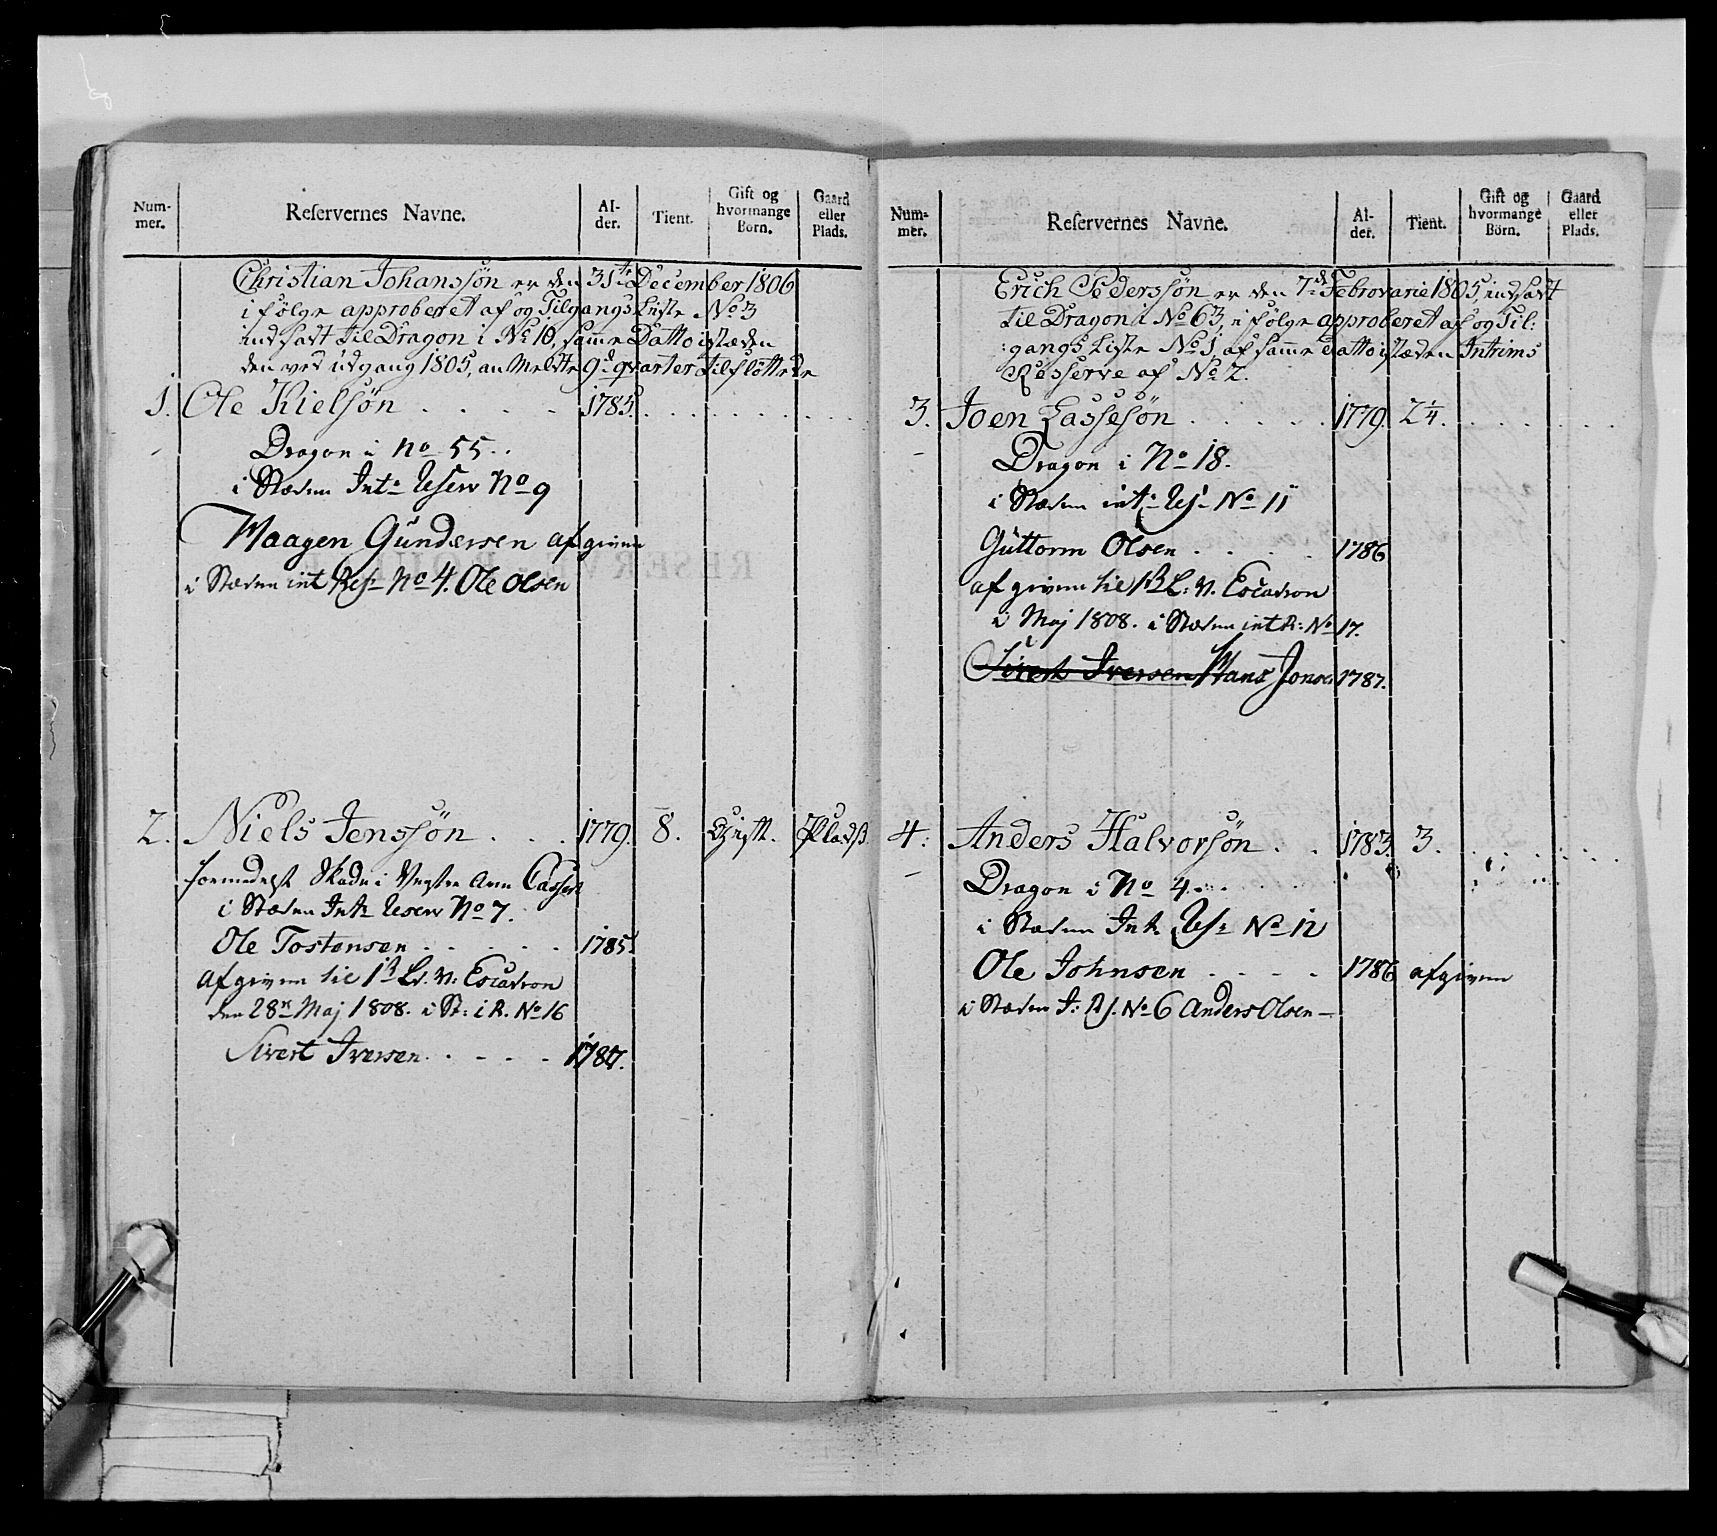 Num-mer. Reservernes Navne. Al-der. Tient. Gift og hvormange Börn. Gaard eller Plads.
Christian Johanssön er den 31te December 1806
i fölge approberet af og Tilgangs Liste No 3
indsadt til Dragon i No 10, samme Datto i stæden
den ved udgang 1805, an Meldte 9de qvarter tilflöttede
1. Ole Kielsön . . . . 1785. . . . . . . . .
Dragon i No 55.
i Stæden Int: Reserv No 9
Haagen Gundersen afgiven
i Stæden int Res: No 4. Ole Olsen
2. Niels Jenssön . . . 1779. 8. Gift. Pladß.
formedelst Skade i Vegstre Arm Casser
i Stæden Int: Reserv No 7.
Ole Tostensen . . . . . 1785.
Afgiven til 1ste L. N: Escadron
den 28de Maj 1808. i St: i R. No 16
Sivert Iversen . . . . . 1787.
Num-mer. Reservernes Navne. Al-der. Tient. Gift og hvormange Börn. Gaard eller Plads.
Erich Pederssön er den 7de Febrovarie 1805, indsadt
til Dragon i No 63, i fölge approberet af og Til:
:gangs Liste No 1, af samme datto i stæden Intrims
Resserve af No 2.
3. Joen Lassesön . . . . . 1779. 2 1/4. . . . . . .
Dragon i No 18.
i Stæden int: Res: No 11
Guttorm Olsen . . . . 1786
afgiven til 1ste L: N. Escadron
i Maj 1808. i Stæden int R: No 17.
Sivert Iversen Hans Jonsen 1787.
4. Anders Halvorsön . . 1783. 3. . . . . . .
Dragon i No 4.
i Stæden Int. Res: No 12
Ole Johnsen . . . . 1786 afgiven
i Stæden I: Rs. No 6 Anders Olsen —